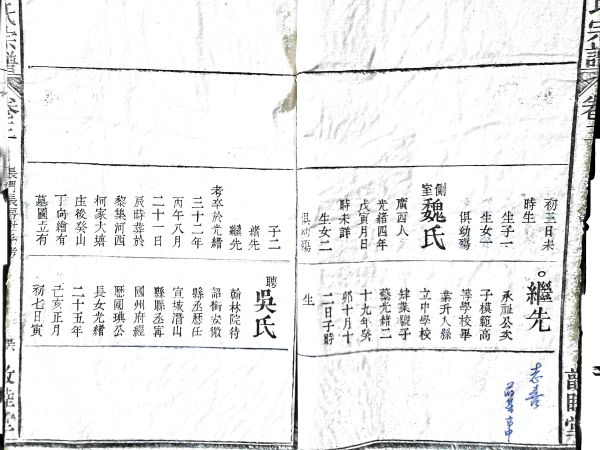 氏宗譜
卷三
初三日未
時生
生子一
生女一
俱幼殤
側室
魏氏
廣西人
光緒四年
戊寅月日
時未詳
生女二
俱幼殤
子二
緒先
繼先
考卒於光緒
三十二年
丙午八月
二十一日
辰時葬於
黎集河西
柯家大塆
庄後癸山
丁向繪有
墓圖立有
繼先
承祉公次
子模範高
等學校畢
業升入縣
立中學校
肄業
光緒二
十九年
卯十月十
二日子時
生
聘
吳氏
翰林院待
詔銜安徽
縣丞歷任
宣城潛山
縣縣丞
國州府經
歷國璵公
長女光緒
二十五年
己亥正月
初七日寅
志喜
氏宗譜
卷三
敦睦堂